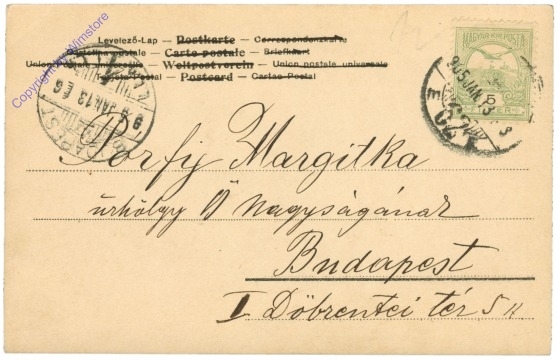 Levelező-Lap — Postkarte — Correspondenzkarte
Carte postale — Briefkaart
Union postale universelle — Weltpostverein — Union postale universale
Postcard — Cartao Postal
MAGYAR KIR. POSTA
905 JAN 13
JAN. 13 E 6
Copyright by Wimstore
Margitka
úrhölgy Ő Nagyságának
Budapest
I Döbrentei tér 5